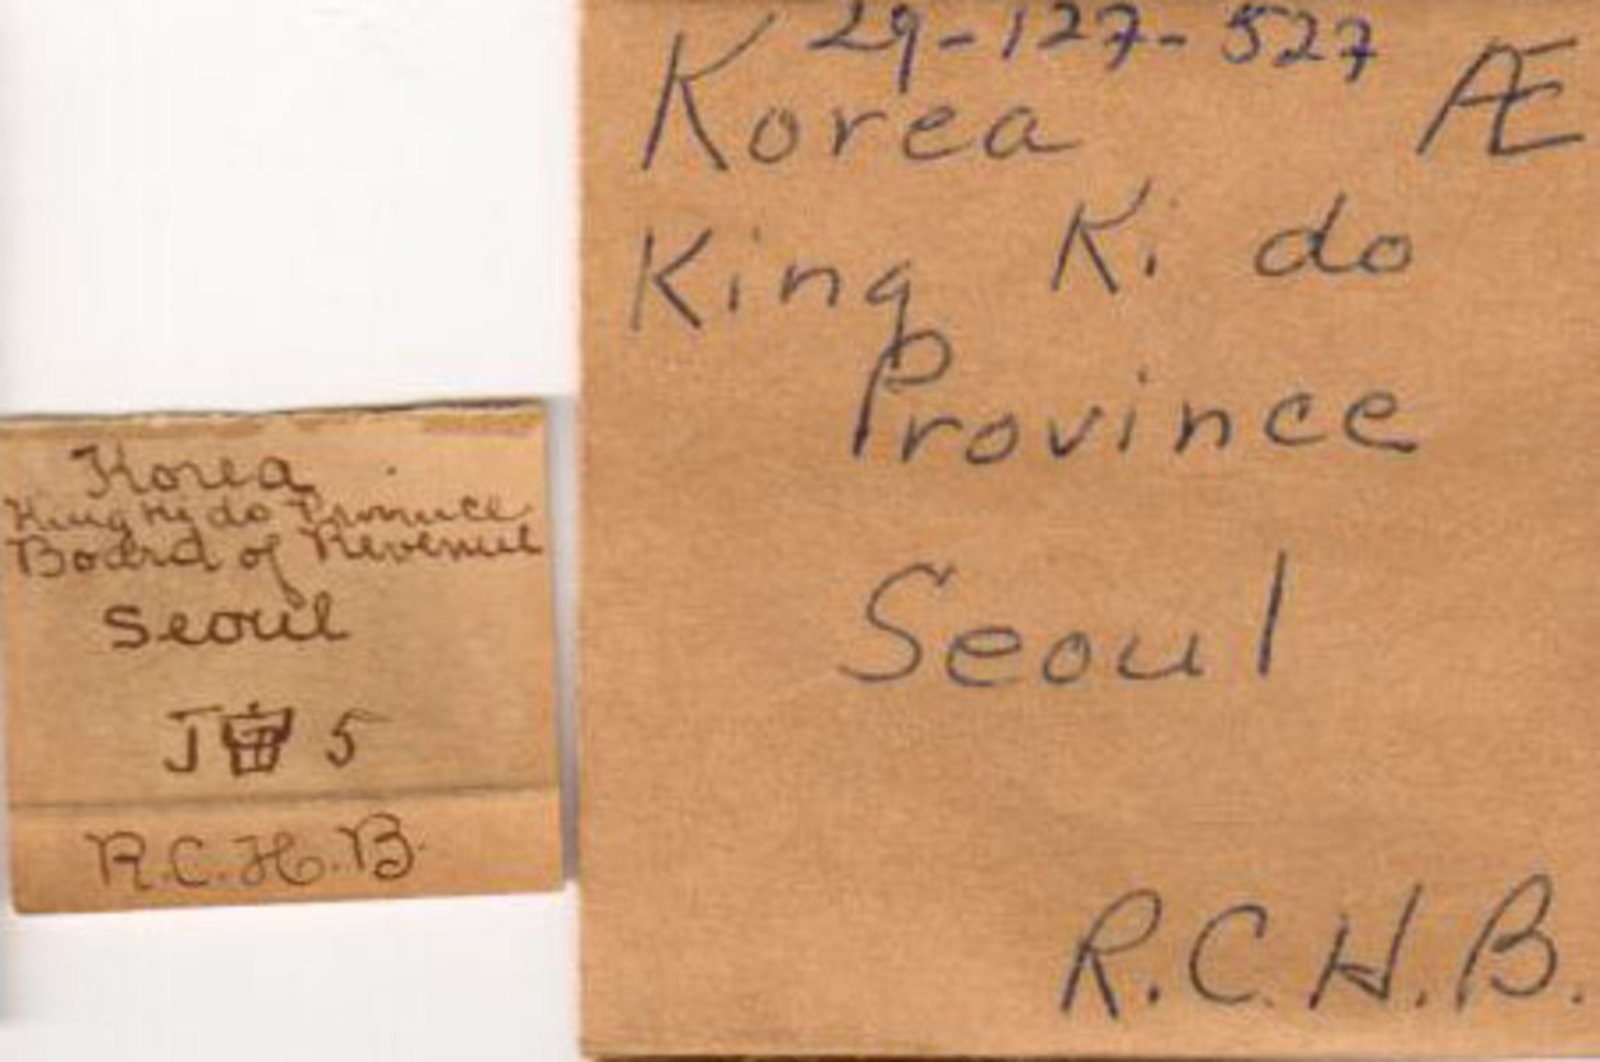 Korea
King Ki do Province
Board of Revenue
Seoul
J 宙 5
R.C.H.B.
29-127-527
Korea Æ
King Ki do
Province
Seoul
R.C.H.B.